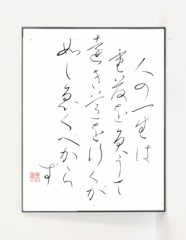 人の一生は
重荷を負うて
遠き道を行くが
如し急ぐべから
ず